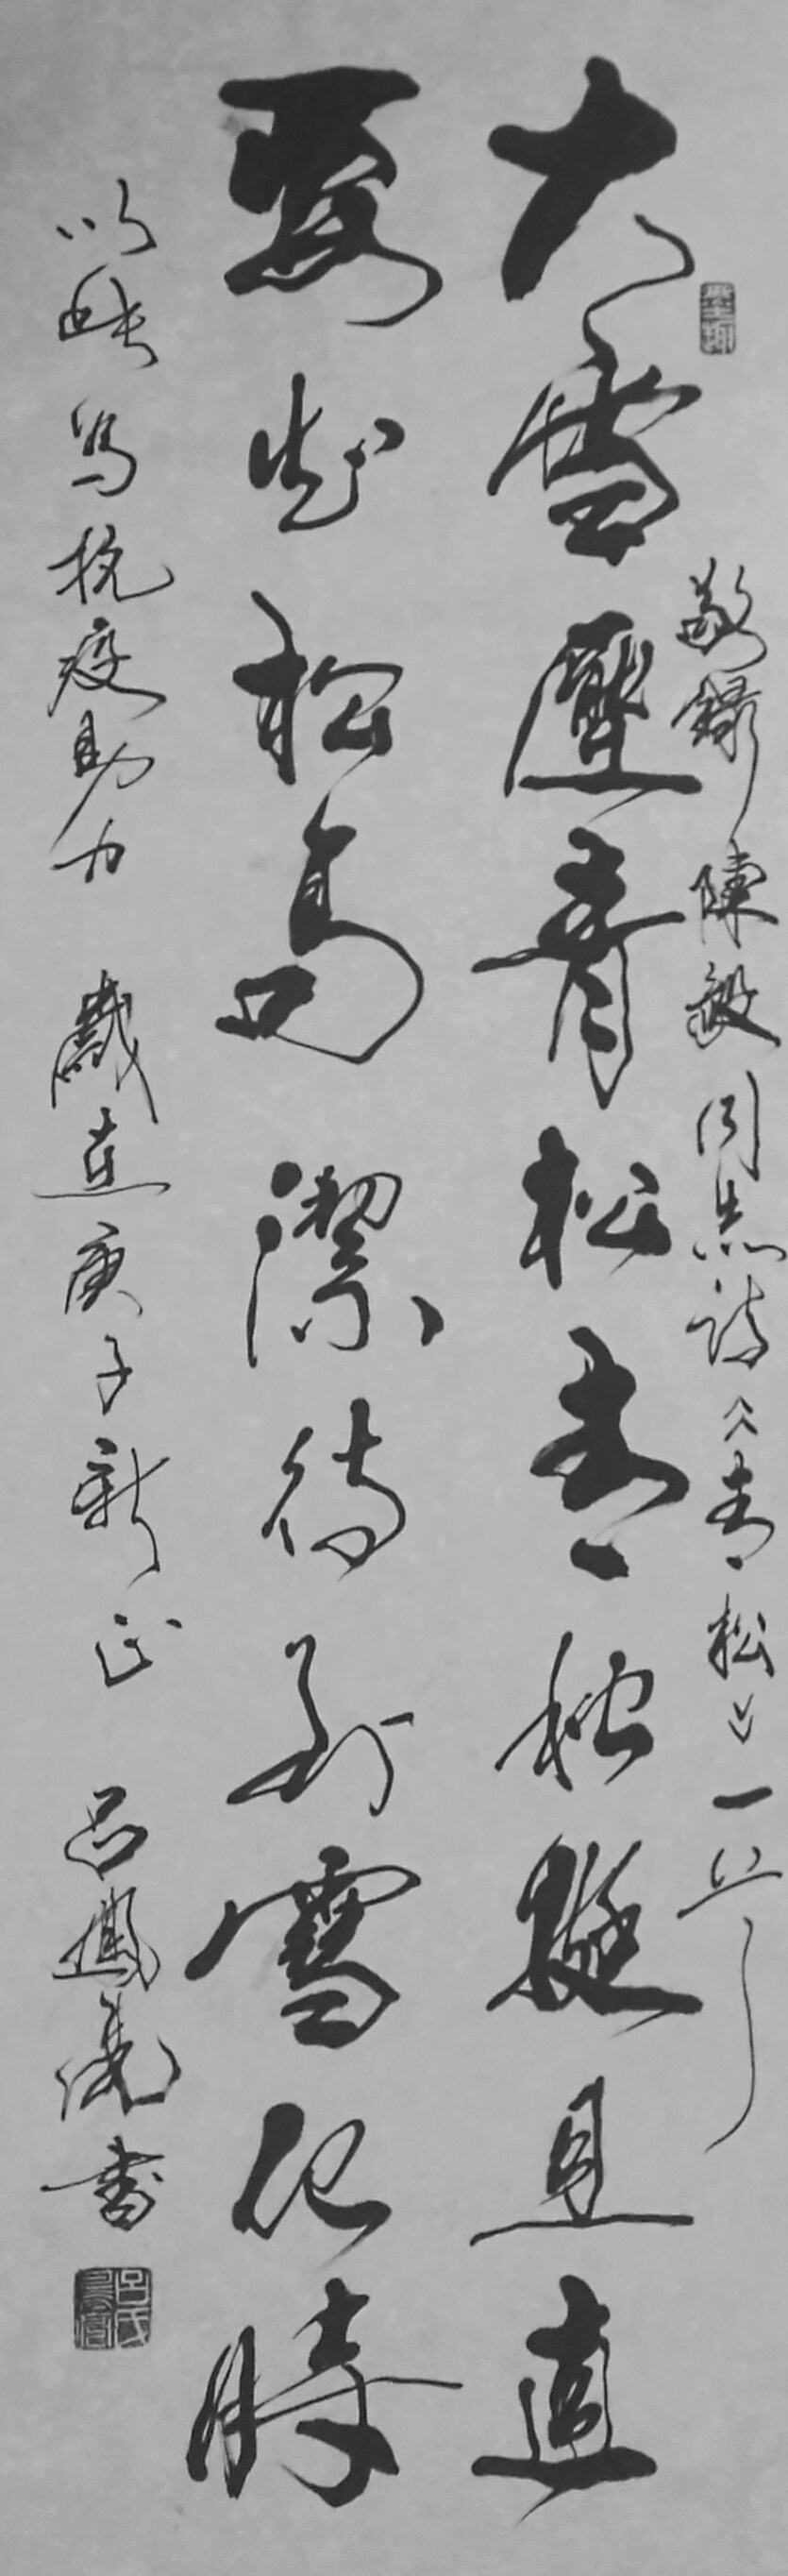 敬錄陳毅同志詩《青松》一首
大雪壓青松青松挺且直
要知松高潔待到雪化時
以此為抗疫助力 歲在庚子新正 呂鳳儀書